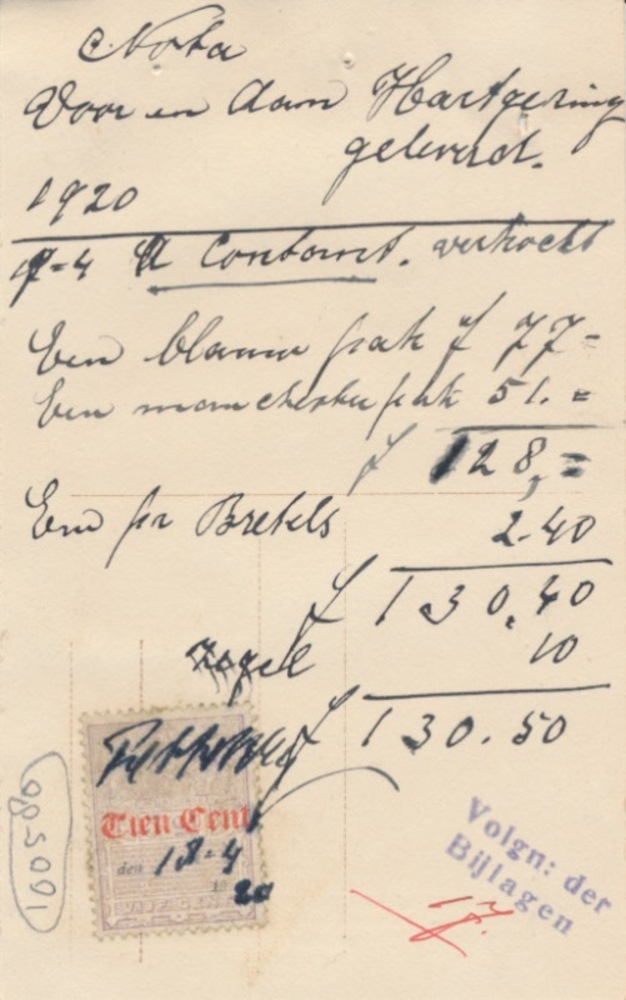 Nota
Voor en aan Hartgering
geleverd.
1920
-4 A Contant. verkocht
Een blauw pak f 77=
Een manchester pak 51.=
f 128,=
Een pr Bretels 2.40
f 130.40
Zegel 10
f 130.50
Tien Cent
den 18-4
1920
Volgn: der
Bijlagen
160500